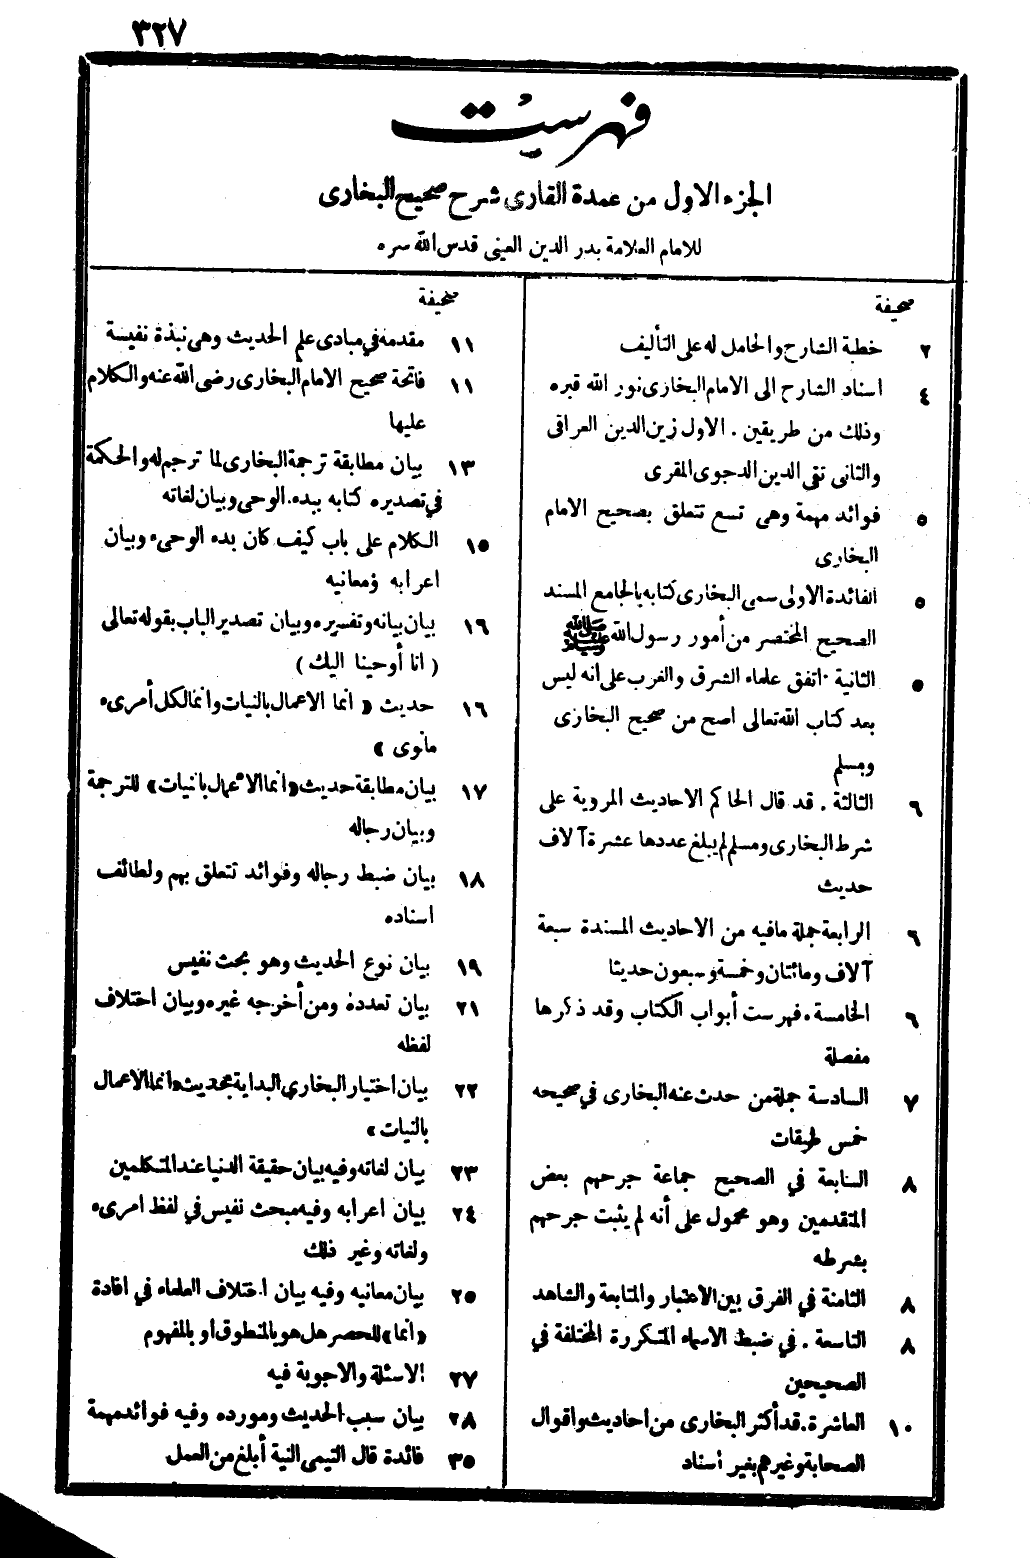 ٣٢٧
فهرست
الجزء الاول من عمدة القارى شرح صحيح البخارى
للامام العلامة بدر الدين العينى قدس الله سره
صحيفة
٢ خطبة الشارح والحامل له على التأليف
٤ اسناد الشارح الى الامام البخارى نور الله قبره
وذلك من طريقين . الاول زين الدين العراقى
والثانى تقى الدين الدجوى المقرى
٥ فوائد مهمة وهى تسع تتعلق بصحيح الامام
البخارى
٥ الفائدة الاولى سمى البخارى كتابه بالجامع المسند
الصحيح المختصر من أمور رسول الله ﷺ
٥ الثانية . اتفق علماء الشرق والغرب على أنه ليس
بعد كتاب الله تعالى اصح من صحيح البخارى
ومسلم
٦ الثالثة . قد قال الحاكم الاحاديث المروية على
شرط البخارى ومسلم لم يبلغ عددها عشرة آلاف
حديث
٦ الرابعة جملة مافيه من الاحاديث المسندة سبعة
آلاف ومائتان وخمسة وسبعون حديثا
٦ الخامسة . فهرست أبواب الكتاب وقد ذكرها
مفصلة
٧ السادسة جملة من حدث عنه البخارى في صحيحه
خمس طبقات
٨ السابعة في الصحيح جماعة جرحهم بعض
المتقدمين وهو محمول على أنه لم يثبت جرحهم
بشرطه
٨ الثامنة في الفرق بين الاعتبار والمتابعة والشاهد
٨ التاسعة . في ضبط الاسماء المتكررة المختلفة في
الصحيحين
١٠ العاشرة . قد أكثر البخارى من احاديث واقوال
الصحابة وغيرهم بغير أسناد
صحيفة
١١ مقدمه في مبادى علم الحديث وهى نبذة نفيسة
١١ فاتحة صحيح الامام البخارى رضى الله عنه والكلام
عليها
١٣ بيان مطابقة ترجمة البخارى لما ترجم له والحكمة
في تصديره كتابه ببدء الوحى وبيان لغاته
١٥ الكلام على باب كيف كان بدء الوحىء وبيان
اعرابه ومعانيه
١٦ بيان بيانه وتفسيره وبيان تصدير الباب بقوله تعالى
( انا أوحينا اليك )
١٦ حديث « انما الاعمال بالنيات وانما لكل أمرىء
مانوى »
١٧ بيان مطابقة حديث «انما الاعمال بالنيات» للترجمة
وبيان رجاله
١٨ بيان ضبط رجاله وفوائد تتعلق بهم ولطائف
اسناده
١٩ بيان نوع الحديث وهو بحث نفيس
٢١ بيان تعدده ومن أخرجه غيره وبيان اختلاف
لفظه
٢٢ بيان اختيار البخاري البداية بحديث «انما الاعمال
بالنيات»
٢٣ بيان لغاته وفيه بيان حقيقة الدنيا عند المتكلمين
٢٤ بيان اعرابه وفيه مبحث نفيس في لفظ امرىء
ولغاته وغير ذلك
٢٥ بيان معانيه وفيه بيان اختلاف العلماء في افادة
«انما» للحصر هل هو بالمنطوق او بالمفهوم
٢٧ الاسئلة والاجوبة فيه
٢٨ بيان سبب الحديث ومورده وفيه فوائد مهمة
٣٥ فائدة قال التيمى النية أبلغ من العمل